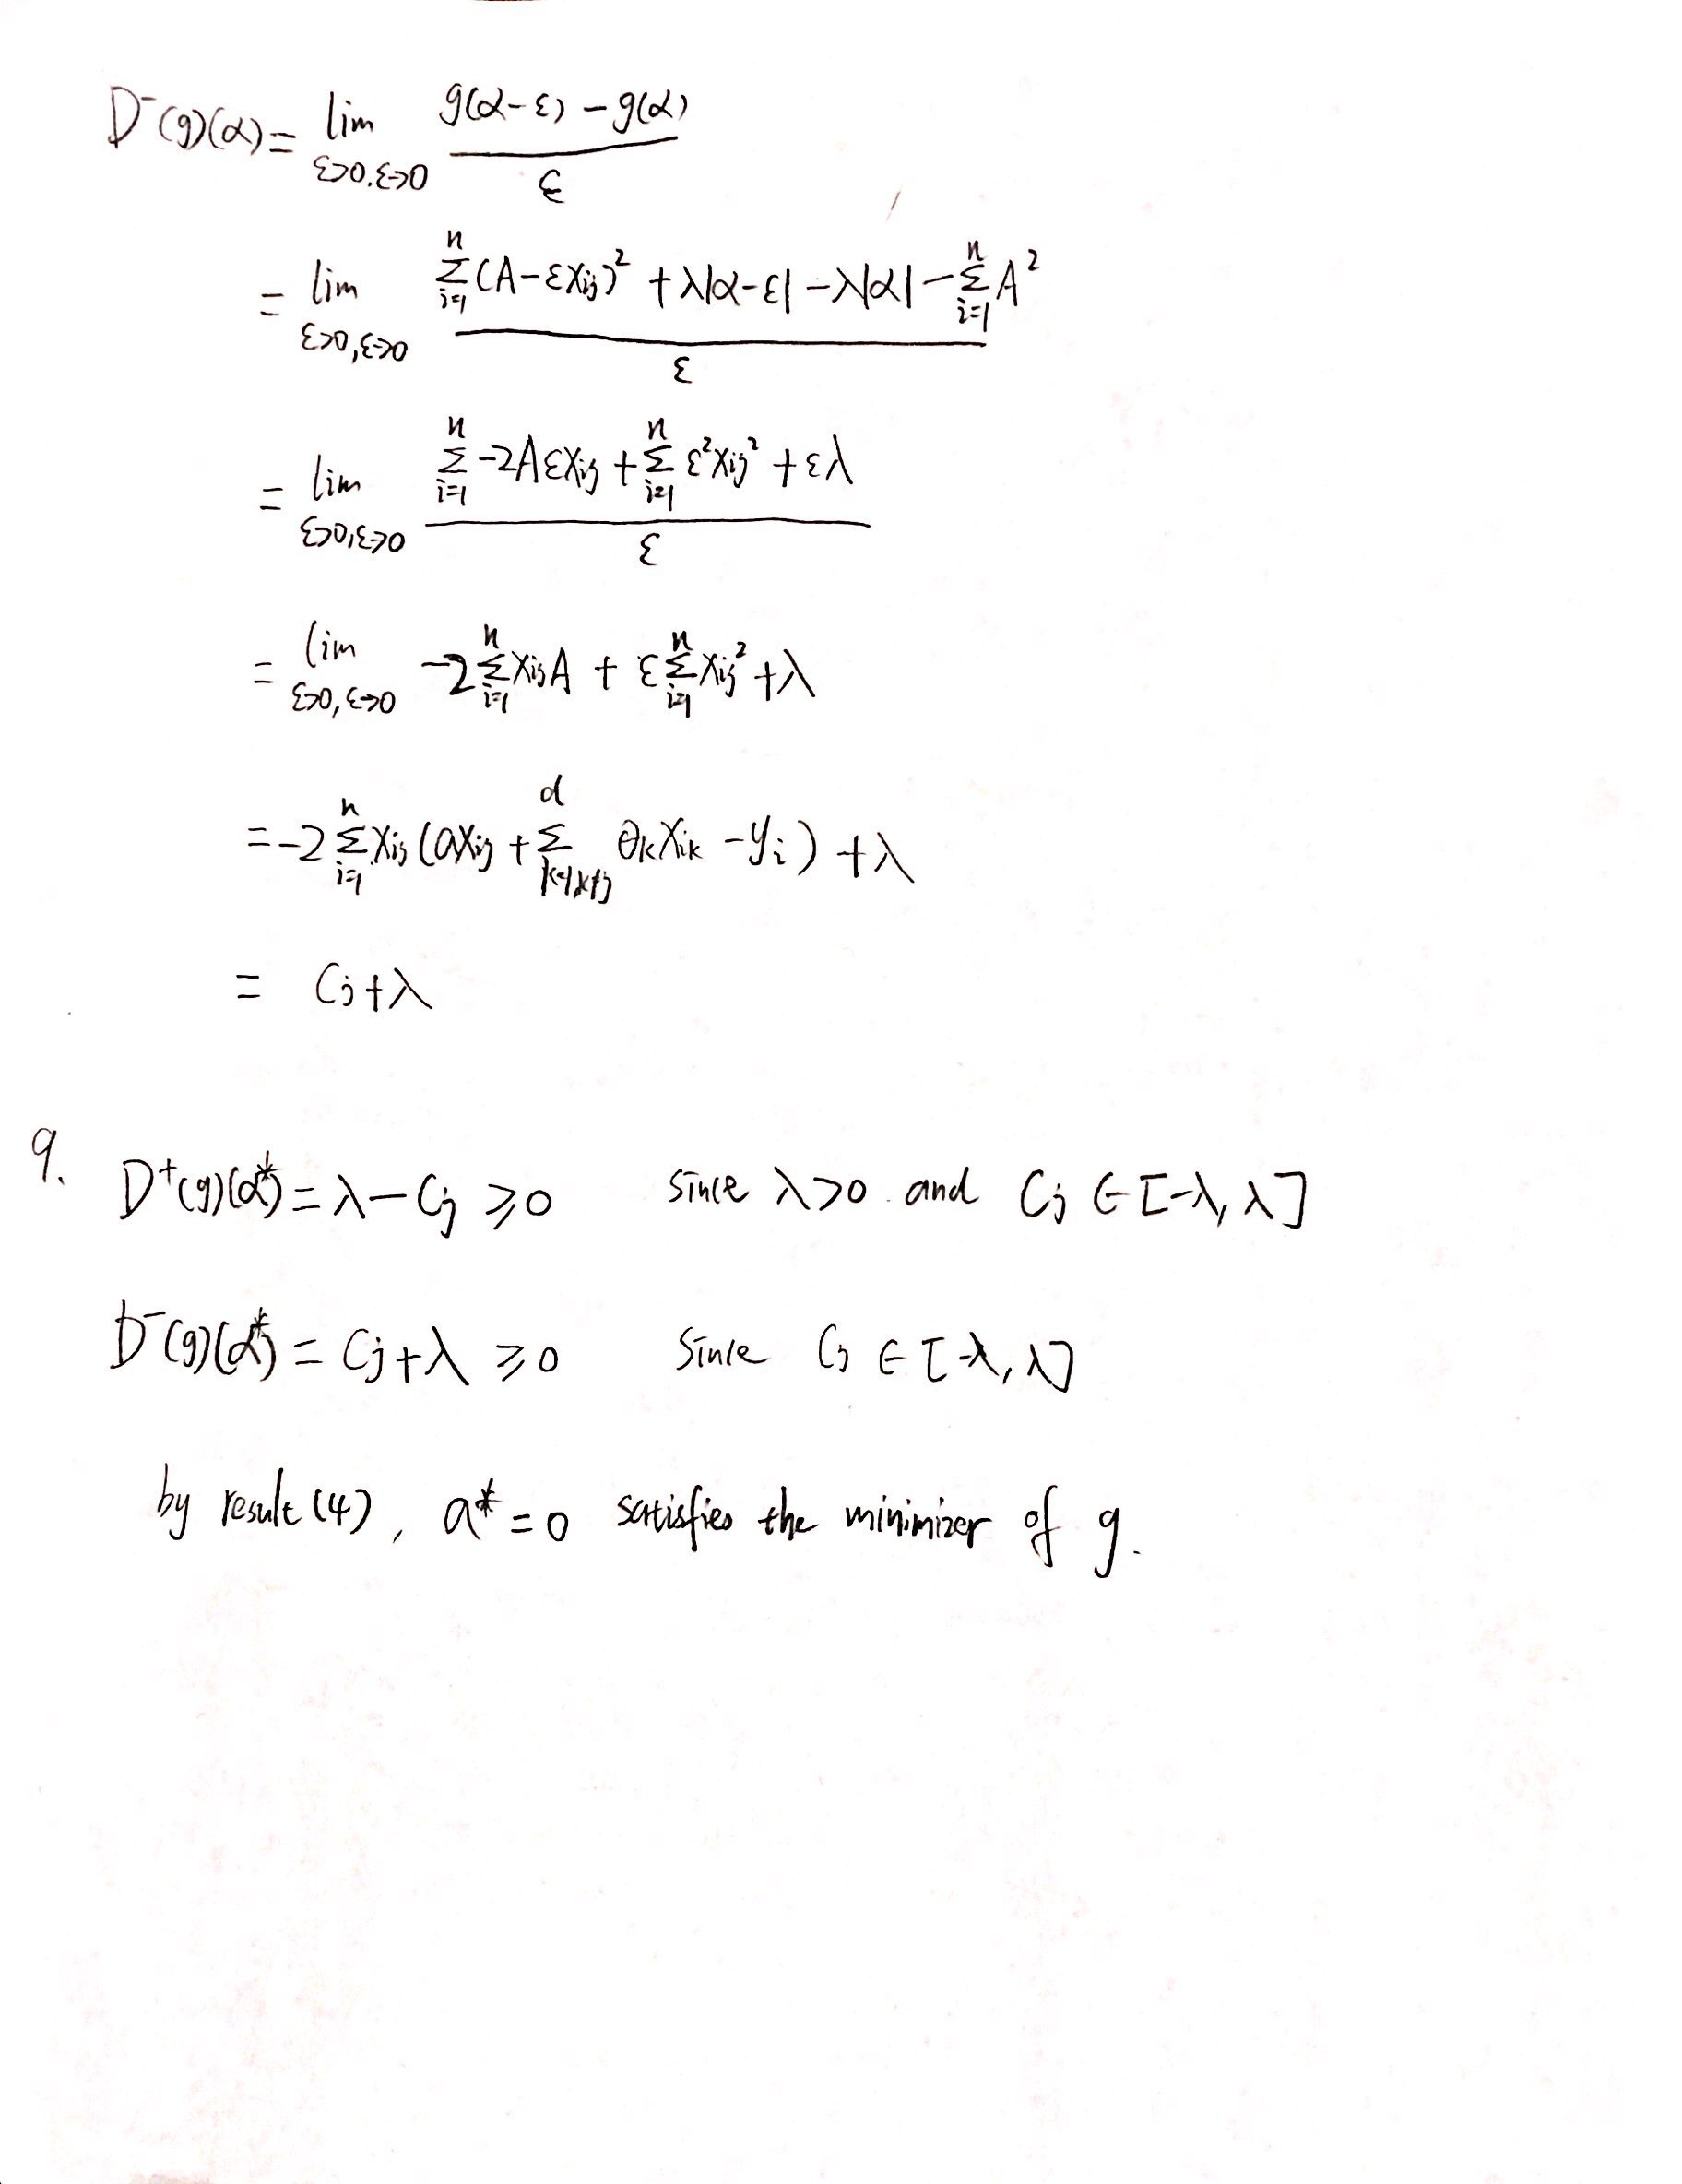 D⁻(g)(α) = lim_{ε>0, ε→0} (g(α-ε) - g(α)) / ε
= lim_{ε>0, ε→0} (Σ_{i=1}^{n} (A-εx_{ij})² + λ|α-ε| - λ|α| - Σ_{i=1}^{n} A²) / ε
= lim_{ε>0, ε→0} (Σ_{i=1}^{n} -2Aεx_{ij} + Σ_{i=1}^{n} ε²x_{ij}² + ελ) / ε
= lim_{ε>0, ε→0} -2 Σ_{i=1}^{n} x_{ij}A + ε Σ_{i=1}^{n} x_{ij}² + λ
= -2 Σ_{i=1}^{n} x_{ij} (ax_{ij} + Σ_{k=1, k≠j}^{d} θ_k x_{ik} - y_i) + λ
= C_j + λ
9. D⁺(g)(α*) = λ - C_j ⩾ 0 since λ>0. and C_j ∈ [-λ, λ]
D⁻(g)(α*) = C_j + λ ⩾ 0 since C_j ∈ [-λ, λ]
by result (4), a* = 0 satisfies the minimizer of g.